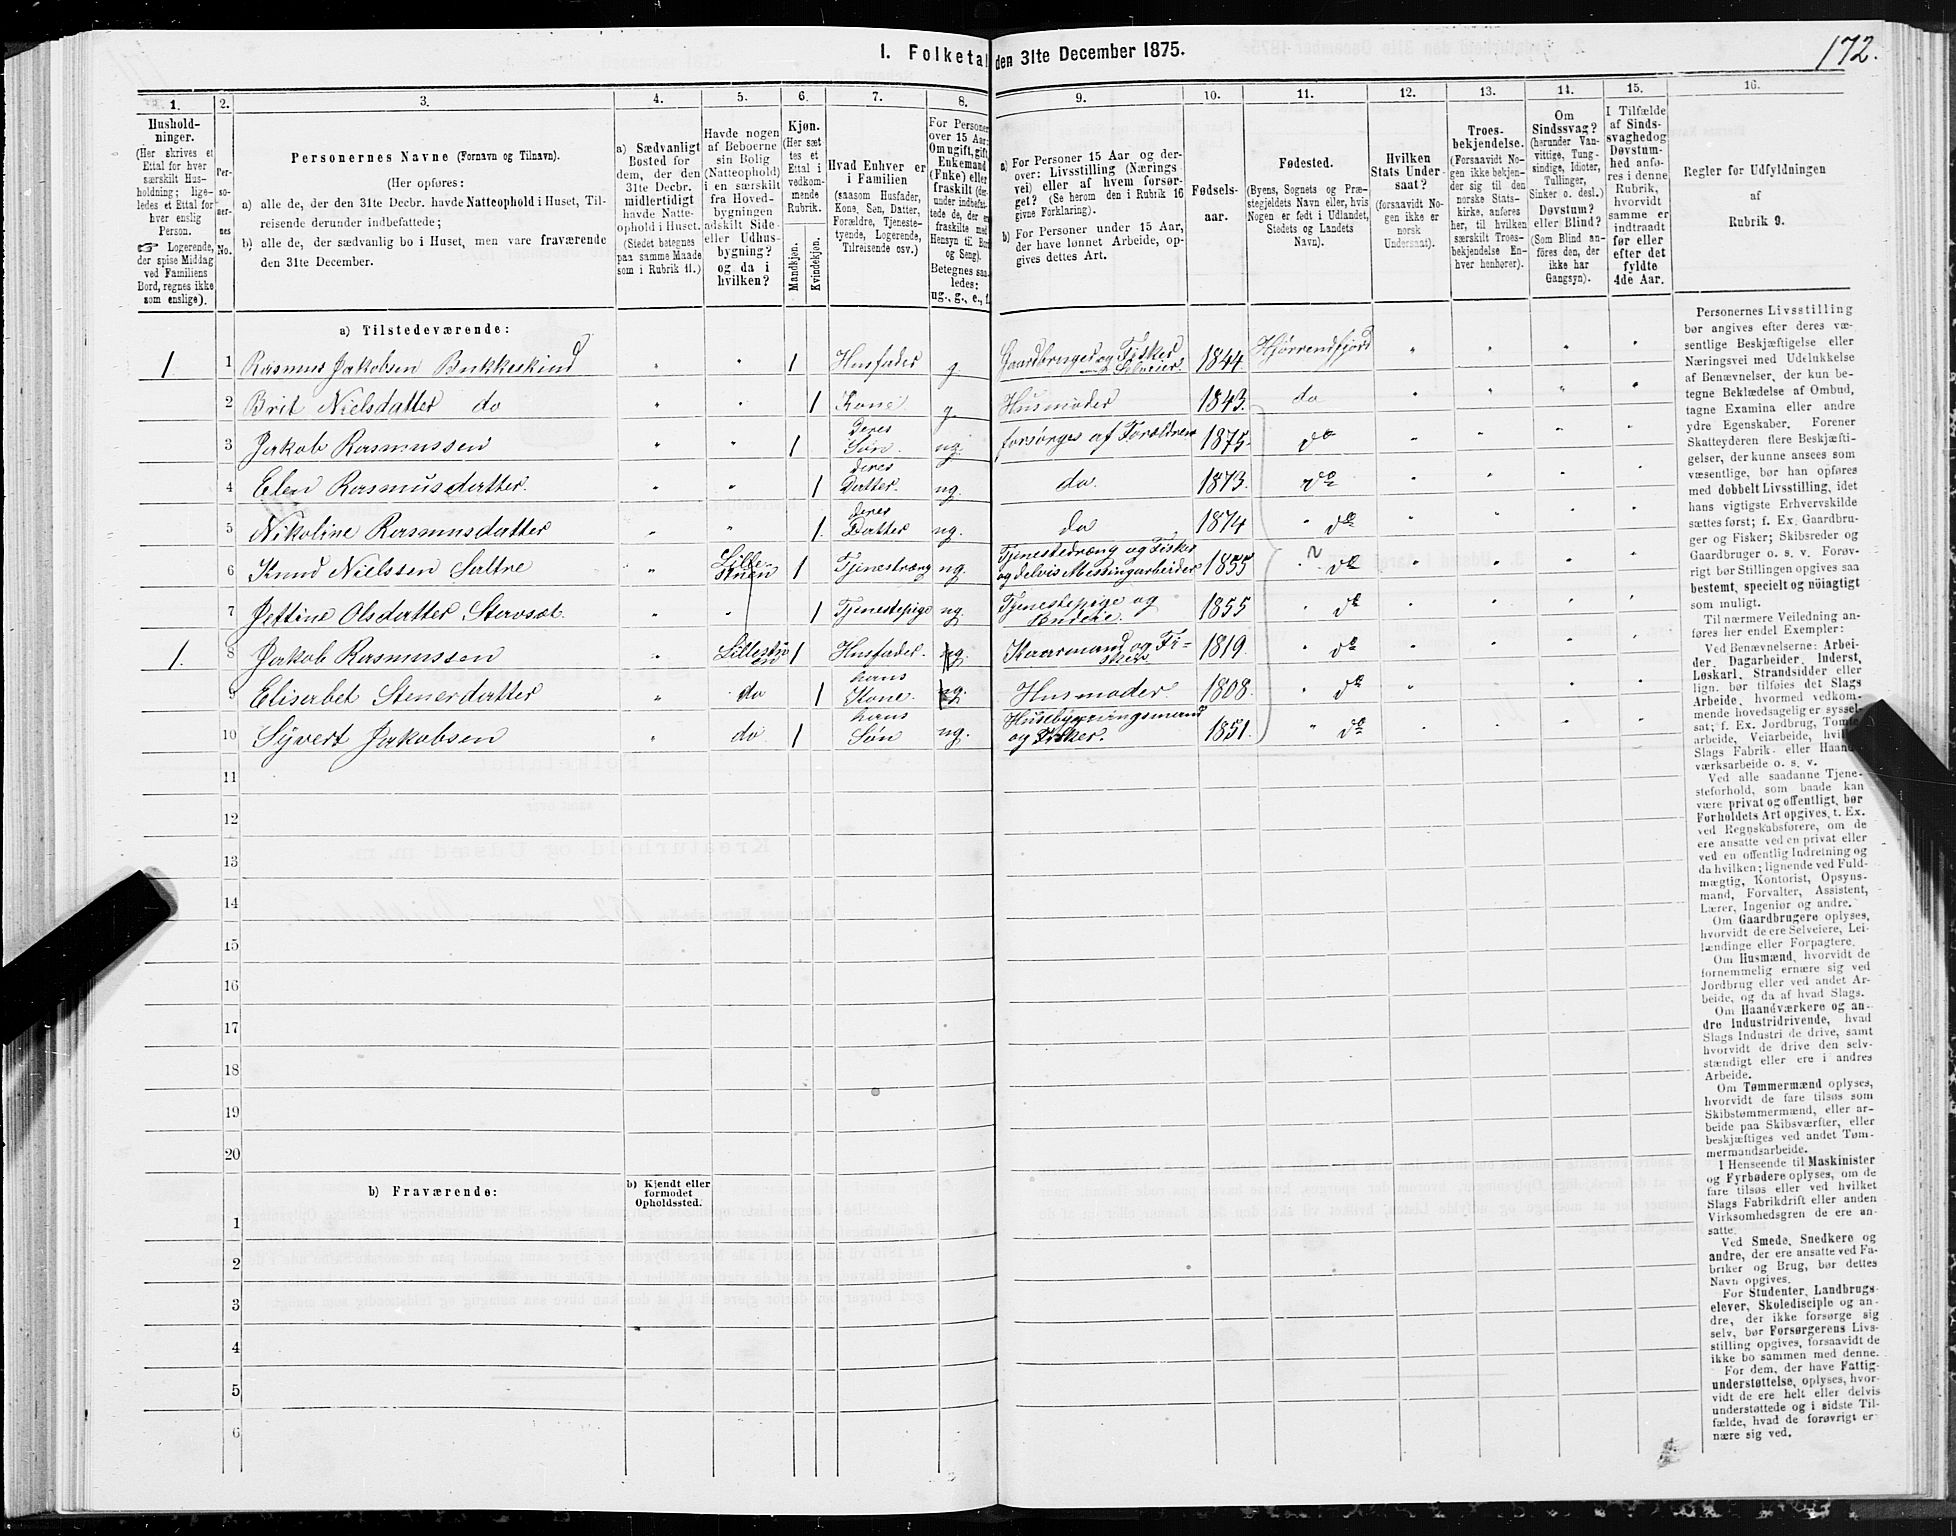 172.
I. Folketal den 31te December 1875.
1. 2. 3. 4. 5. 6. 7. 8. 9. 10. 11. 12. 13. 14. 15. 16.
Hushold-
ninger.
(Her skrives et
Ettal for hver
særskilt Hus-
holdning; lige-
ledes et Ettal for
hver enslig
Person.
☞ Logerende,
der spise Middag
ved Familiens
Bord, regnes ikke
som enslige).
Per-
so-
ner-
nes
No.
Personernes Navne (Fornavn og Tilnavn).
(Her opføres:
a) alle de, der den 31te Decbr. havde Natteophold i Huset, Til-
reisende derunder indbefattede;
b) alle de, der sædvanlig bo i Huset, men vare fraværende
den 31te December.
a) Sædvanligt
Bosted for
dem, der den
31te Decbr.
midlertidigt
havde Natte-
ophold i Huset.
(Stedet betegnes
paa samme Maade
som i Rubrik 11.)
Havde nogen
af Beboerne
sin Bolig
(Natteophold)
i en særskilt
fra Hoved-
bygningen
adskilt Side-
eller Udhus-
bygning?
og da i
hvilken?
Kjøn.
(Her sæt-
tes et
Ettal i
vedkom-
mende
Rubrik.
Mandkjøn.
Kvindekjøn.
Hvad Enhver er
i Familien
(saasom Husfader,
Kone, Søn, Datter,
Forældre, Tjeneste-
tyende, Logerende,
Tilreisende osv.)
For Personer
over 15 Aar:
Om ugift, gift,
Enkemand
(Enke) eller
fraskilt (der-
under indbefat-
tede de, der ere
fraskilte med
Hensyn til Bord
og Seng).
Betegnes saa-
ledes:
ug., g., e., f.
a) For Personer 15 Aar og der-
over: Livsstilling (Nærings-
vei) eller af hvem forsør-
get? (Se herom den i Rubrik 16
givne Forklaring).
b) For Personer under 15 Aar,
der have lønnet Arbeide, op-
gives dettes Art.
Fødsels-
aar.
Fødested.
(Byens, Sognets og Præ-
stegjeldets Navn eller, hvis
Nogen er født i Udlandet,
Stedets og Landets
Navn).
Hvilken
Stats Under-
saat?
(forsaavidt No-
gen ikke er
norsk
Undersaat).
Troes-
bekjendelse.
(Forsaavidt No-
gen ikke bekjen-
der sig til den
norske Stats-
kirke, anføres
her, til hvilken
særskilt Troes-
bekjendelse En-
hver henhører).
Om
Sindssvag?
(herunder Van-
vittige, Tung-
sindige, Idioter,
Tullinger,
Sinker o. desl.)
Døvstum?
eller Blind?
(Som Blind an-
føres den, der
ikke har
Gangsyn).
I Tilfælde
af Sinds-
svaghed og
Døvstum-
hed anfø-
res i denne
Rubrik,
hvorvidt
samme er
indtraadt
før eller
efter det
fyldte
4de Aar.
Regler for Udfyldningen
af
Rubrik 9.
a) Tilstedeværende:
1 1 Rasmus Jakobsen Bukkeskind " " 1 Husfader g. Gaardbruger og Fisker 1844 Hjørrendfjord " " " "
Selveier.
2 Brit Nielsdatter do " " 1 Kone g. Husmoder 1843. do " " " "
3 Jakob Rasmussen " " 1 Deres Søn. ug. forsørges af Forældrene 1875. do " " " "
4 Elen Rasmusdatter. " " 1 deres Datter. ug. do. 1873. do " " " "
5 Nikoline Rasmusdatter " " 1. deres Datter ug. do 1874 " do " " " "
6 Knud Nielssen Sætre " Lille-stuen 1 Tjenestræng ug. Tjenestedræng og Fisker 1855 " do " " " "
og delvis Messingarbeider
7 Jettine Olsdatter " " 1 Tjenestepige ug. Tjenestepige og 1855 " do " " " "
Budeie.
1. 8 Jakob Rasmussen " Lillestuen 1 Husfader. g. Kaarmand og Fi- 1819. " do " " " "
sker
9 Elisabet Stenersdatter " do 1 hans Kone. g. Husmoder. 1808. " do " " " "
10 Syvert Jakobsen " do 1 hans Søn ug. Husebygningsmand 1851. " do " " " "
og Fisker.
11
12
13
14
15
16
17
18
19
20
b) Fraværende:
b) Kjendt eller
formodet
Opholdssted.
1
2
3
4
5
6
Personernes Livsstilling
bør angives efter deres væ-
sentlige Beskjæftigelse eller
Næringsvei med Udelukkelse
af Benævnelser, der kun be-
tegne Beklædelse af Ombud,
tagne Examina eller andre
ydre Egenskaber. Forener
Skatteyderen flere Beskjæfti-
gelser, der kunne ansees som
væsentlige, bør han opføres
med dobbelt Livsstilling, idet
hans vigtigste Erhvervskilde
sættes først; f. Ex. Gaardbru-
ger og Fisker; Skibsreder og
Gaardbruger o. s. v. Forøv-
rigt bør Stillingen opgives saa
bestemt, specielt og nöiagtigt
som muligt.
Til nærmere Veiledning an-
føres her endel Exempler:
Ved Benævnelserne: Arbei-
der, Dagarbeider, Inderst,
Løskarl, Strandsidder eller
lign. bør tilføies det Slags
Arbeide, hvormed vedkom-
mende hovedsagelig er syssel-
sat; f. Ex. Jordbrug, Tomte-
arbeide, Veiarbeide, hvilket
Slags Fabrik- eller Haand-
værksarbeide o. s. v.
Ved alle saadanne Tjene-
steforhold, som baade kan
være privat og offentligt, bør
Forholdets Art opgives, t. Ex.
ved Regnskabsførere, om de
ere ansatte ved en privat eller
ved en offentlig Indretning og
da hvilken; lignende ved Fuld-
mægtig, Kontorist, Opsyns-
mand, Forvalter, Assistent,
Lærer, Ingeniør og andre.
Om Gaardbrugere oplyses,
hvorvidt de ere Selveiere, Lei-
lændinge eller Forpagtere.
Om Husmænd, hvorvidt de
fornemmelig ernære sig ved
Jordbrug eller ved andet Ar-
beide, og da af hvad Slags.
Om Haandværkere og an-
dre Industridrivende, hvad
Slags Industri de drive, samt
hvorvidt de drive den selv-
stændigt eller ere i andres
Arbeide.
Om Tømmermænd oplyses,
hvorvidt de fare tilsøs som
Skibstømmermænd, eller ar-
beide paa Skibsværfter, eller
beskjæftiges ved andet Tøm-
mermandsarbeide.
I Henseende til Maskinister
og Fyrbødere oplyses, om de
fare tilsøs eller ved hvilket
Slags Fabrikdrift eller anden
Virksomhedsgren de ere an-
satte.
Ved Smede, Snedkere og
andre, der ere ansatte ved Fa-
briker og Brug, bør dettes
Navn opgives.
For Studenter, Landbrugs-
elever, Skoledisciple og an-
dre, der ikke forsørge sig
selv, bør Forsørgerens Livs-
stilling opgives, forsaavidt de
ikke bo sammen med denne.
For dem, der have Fattig-
understøttelse, oplyses, hvor-
vidt de ere helt eller delvis
understøttede og i sidste Til-
fælde, hvad de forøvrigt er-
nære sig ved.